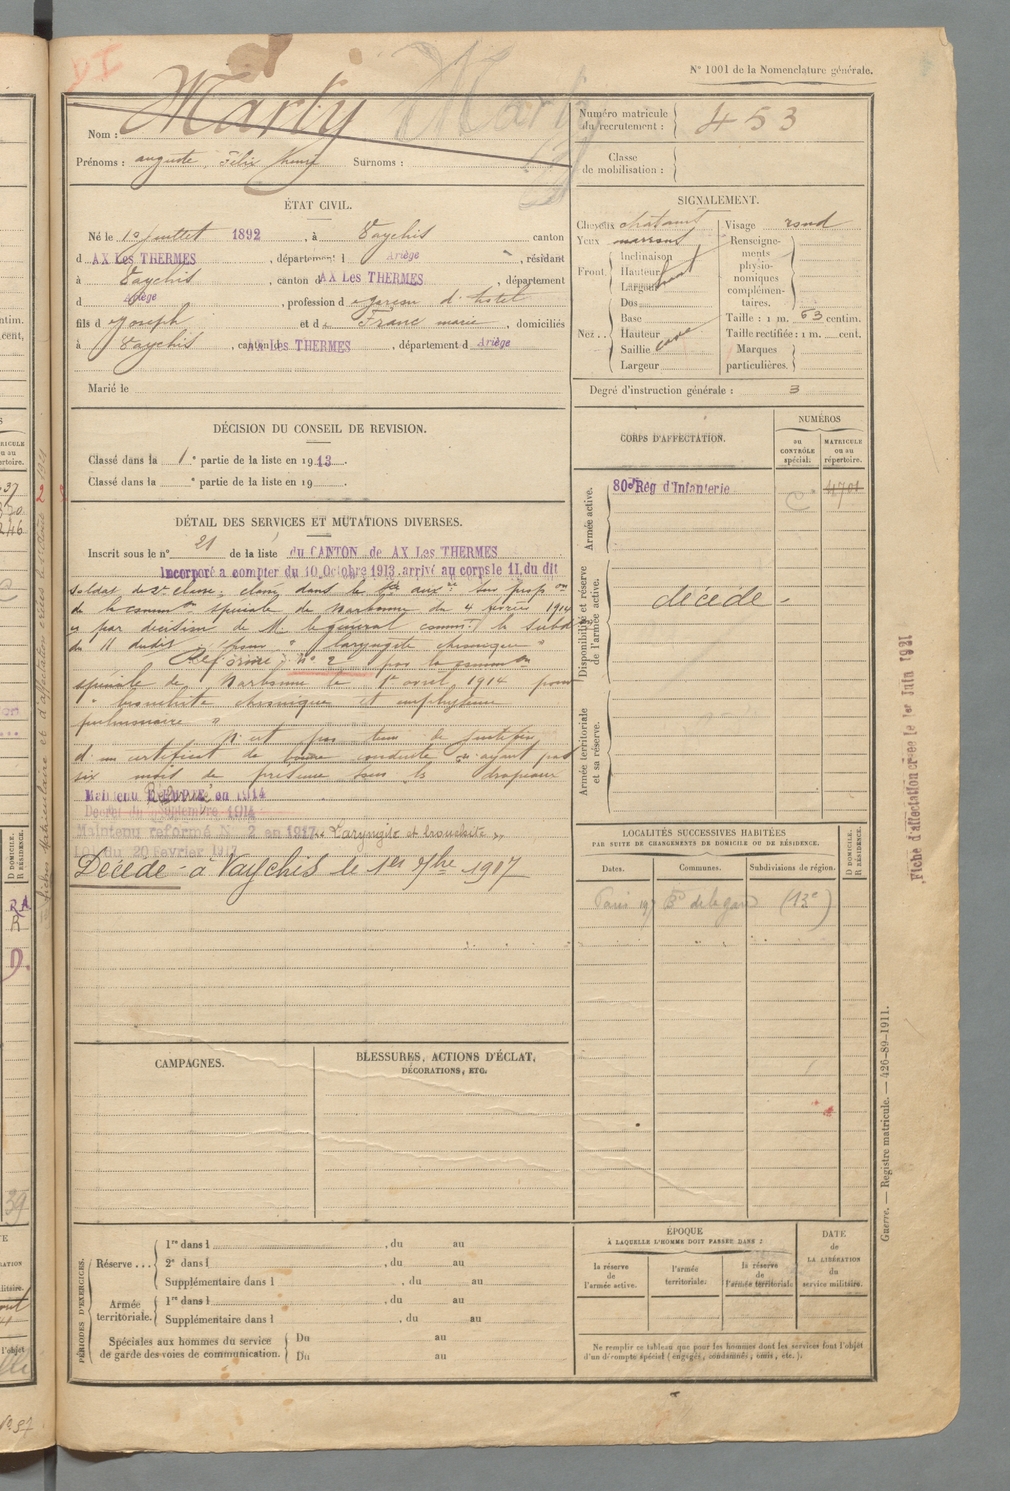 N° 1001 de la Nomenclature générale.
Nom : Marty
Marty
Prénoms : auguste Félix henry Surnoms :
Numéro matricule du recrutement : 453
Classe de mobilisation :
ÉTAT CIVIL.
Né le juillet 1892, à Vaychis canton
d AX Les THERMES, département d Ariège, résidant
à Vaychis, canton d AX Les THERMES, département
d Ariège, profession d garçon d'hotel
fils d Joseph et d Franc marie, domiciliés
à Vaychis, canton d AX Les THERMES, département d Ariège
Marié le
SIGNALEMENT.
Cheveux chatains
Yeux marrons
Front. Inclinaison
Hauteur
Largeur
Nez. Dos
Base
Hauteur
Saillie
Largeur
Visage rond
Renseignements physionomiques complémentaires.
Taille : 1 m. 63 centim.
Taille rectifiée : 1 m. cent.
Marques particulières.
Degré d'instruction générale : 3
DÉCISION DU CONSEIL DE REVISION.
Classé dans la 1e partie de la liste en 1913.
Classé dans la e partie de la liste en 19
CORPS D'AFFECTATION.
NUMÉROS
DU CONTRÔLE spécial.
MATRICULE ou au répertoire.
Armée active.
80e Rég d'Infanterie 4701
Disponibilité et réserve de l'armée active.
décédé
Armée territoriale et sa réserve.
DÉTAIL DES SERVICES ET MUTATIONS DIVERSES.
Inscrit sous le n° 21 de la liste du CANTON de AX Les THERMES
Incorporé a compter du 10 Octobre 1913. arrivé au corps le 11. du dit
soldat de 2e classe, classé dans le sce auxre sur propon
de la common spéciale de Narbonne du 4 février 1914
par décision de M. le général commt la subd
du 11 dudit pour " laryngite chronique "
Réformé n° 2 par la common
spéciale de Narbonne le 1er avril 1914 pour
" bronchite chronique et emphysème
pulmonaire "
N'est pas tenu de justifier
d'un certificat de bonne conduite n'ayant pas
six mois de présence sous les drapeaux
Maintenu en 1914
Décret du Septembre 1914
Maintenu réformé N. 2 en 1917 " Laryngite et bronchite "
Loi du 20 Février 1917
Décédé à Vaychis le 1er 7bre 1917
LOCALITÉS SUCCESSIVES HABITÉES
PAR SUITE DE CHANGEMENTS DE DOMICILE OU DE RÉSIDENCE.
Dates. Communes. Subdivisions de région.
D DOMICILE. R RÉSIDENCE.
Paris Bd de la gare (13e)
CAMPAGNES.
BLESSURES, ACTIONS D'ÉCLAT,
DÉCORATIONS, ETC.
PÉRIODES D'EXERCICES.
Réserve ... 1re dans l , du au
2e dans l , du au
Supplémentaire dans l , du au
Armée territoriale. 1re dans l , du au
Supplémentaire dans l , du au
Spéciales aux hommes du service Du au
de garde des voies de communication. Du au
ÉPOQUE
À LAQUELLE L'HOMME DOIT PASSER DANS :
la réserve de l'armée active.
l'armée territoriale.
la réserve de l'armée territoriale
DATE de LA LIBÉRATION du service militaire.
Ne remplir ce tableau que pour les hommes dont les services font l'objet
d'un décompte spécial (engagés, condamnés, omis, etc.).
Fiche d'affectation créée le 1er Juin 1921
Guerre. — Registre matricule. — 426-89-1911.